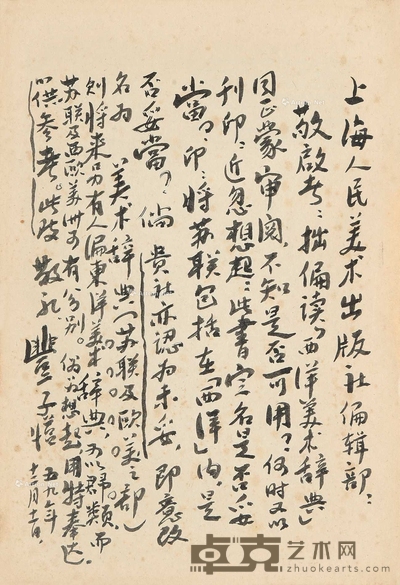 上海人民美术出版社偏辑部：
敬启者：拙偏读「西洋美术辞典」
目正蒙审阅，不知是否可用？何时可以
刊印？近忽想起：此书定名是否妥
当？即：将苏联包括在「西洋」内，是
否妥当？倘贵社亦认为未妥，即应改
名为美术辞典（苏联及欧美之部）
则将来另有人偏东洋美术辞典，可以君类，而
苏联及西欧美洲可有分别。偶为想起，用特奉达
以供参考。此致敬礼
丰子恺 五九年
十二月十日
卓克艺术网
www.zhuokearts.com